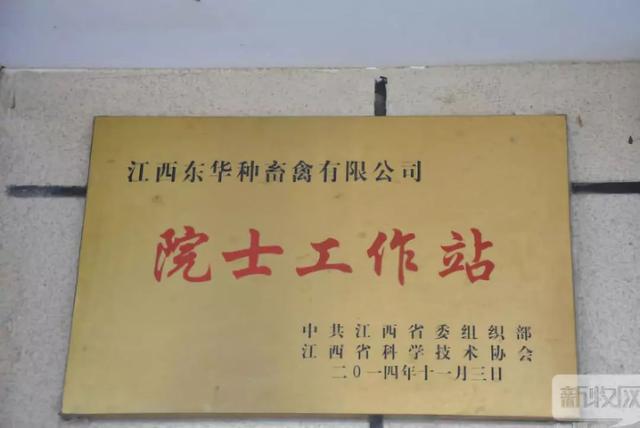 江西东华种畜禽有限公司
院士工作站
中共江西省委组织部
江西省科学技术协会
二0一四年十一月三日
新牧网